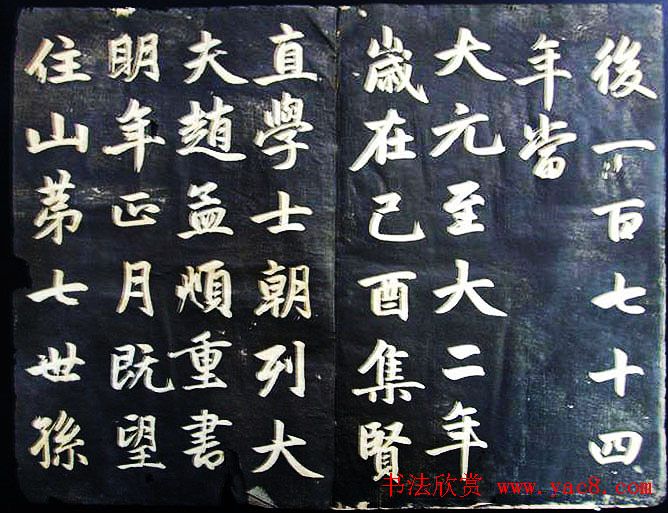 後一百七十四
年當
大元至大二年
歲在己酉集賢
直學士朝列大
夫趙孟頫重書
明年正月既望
住山苐七世孫
书法欣赏 www.yac8.com